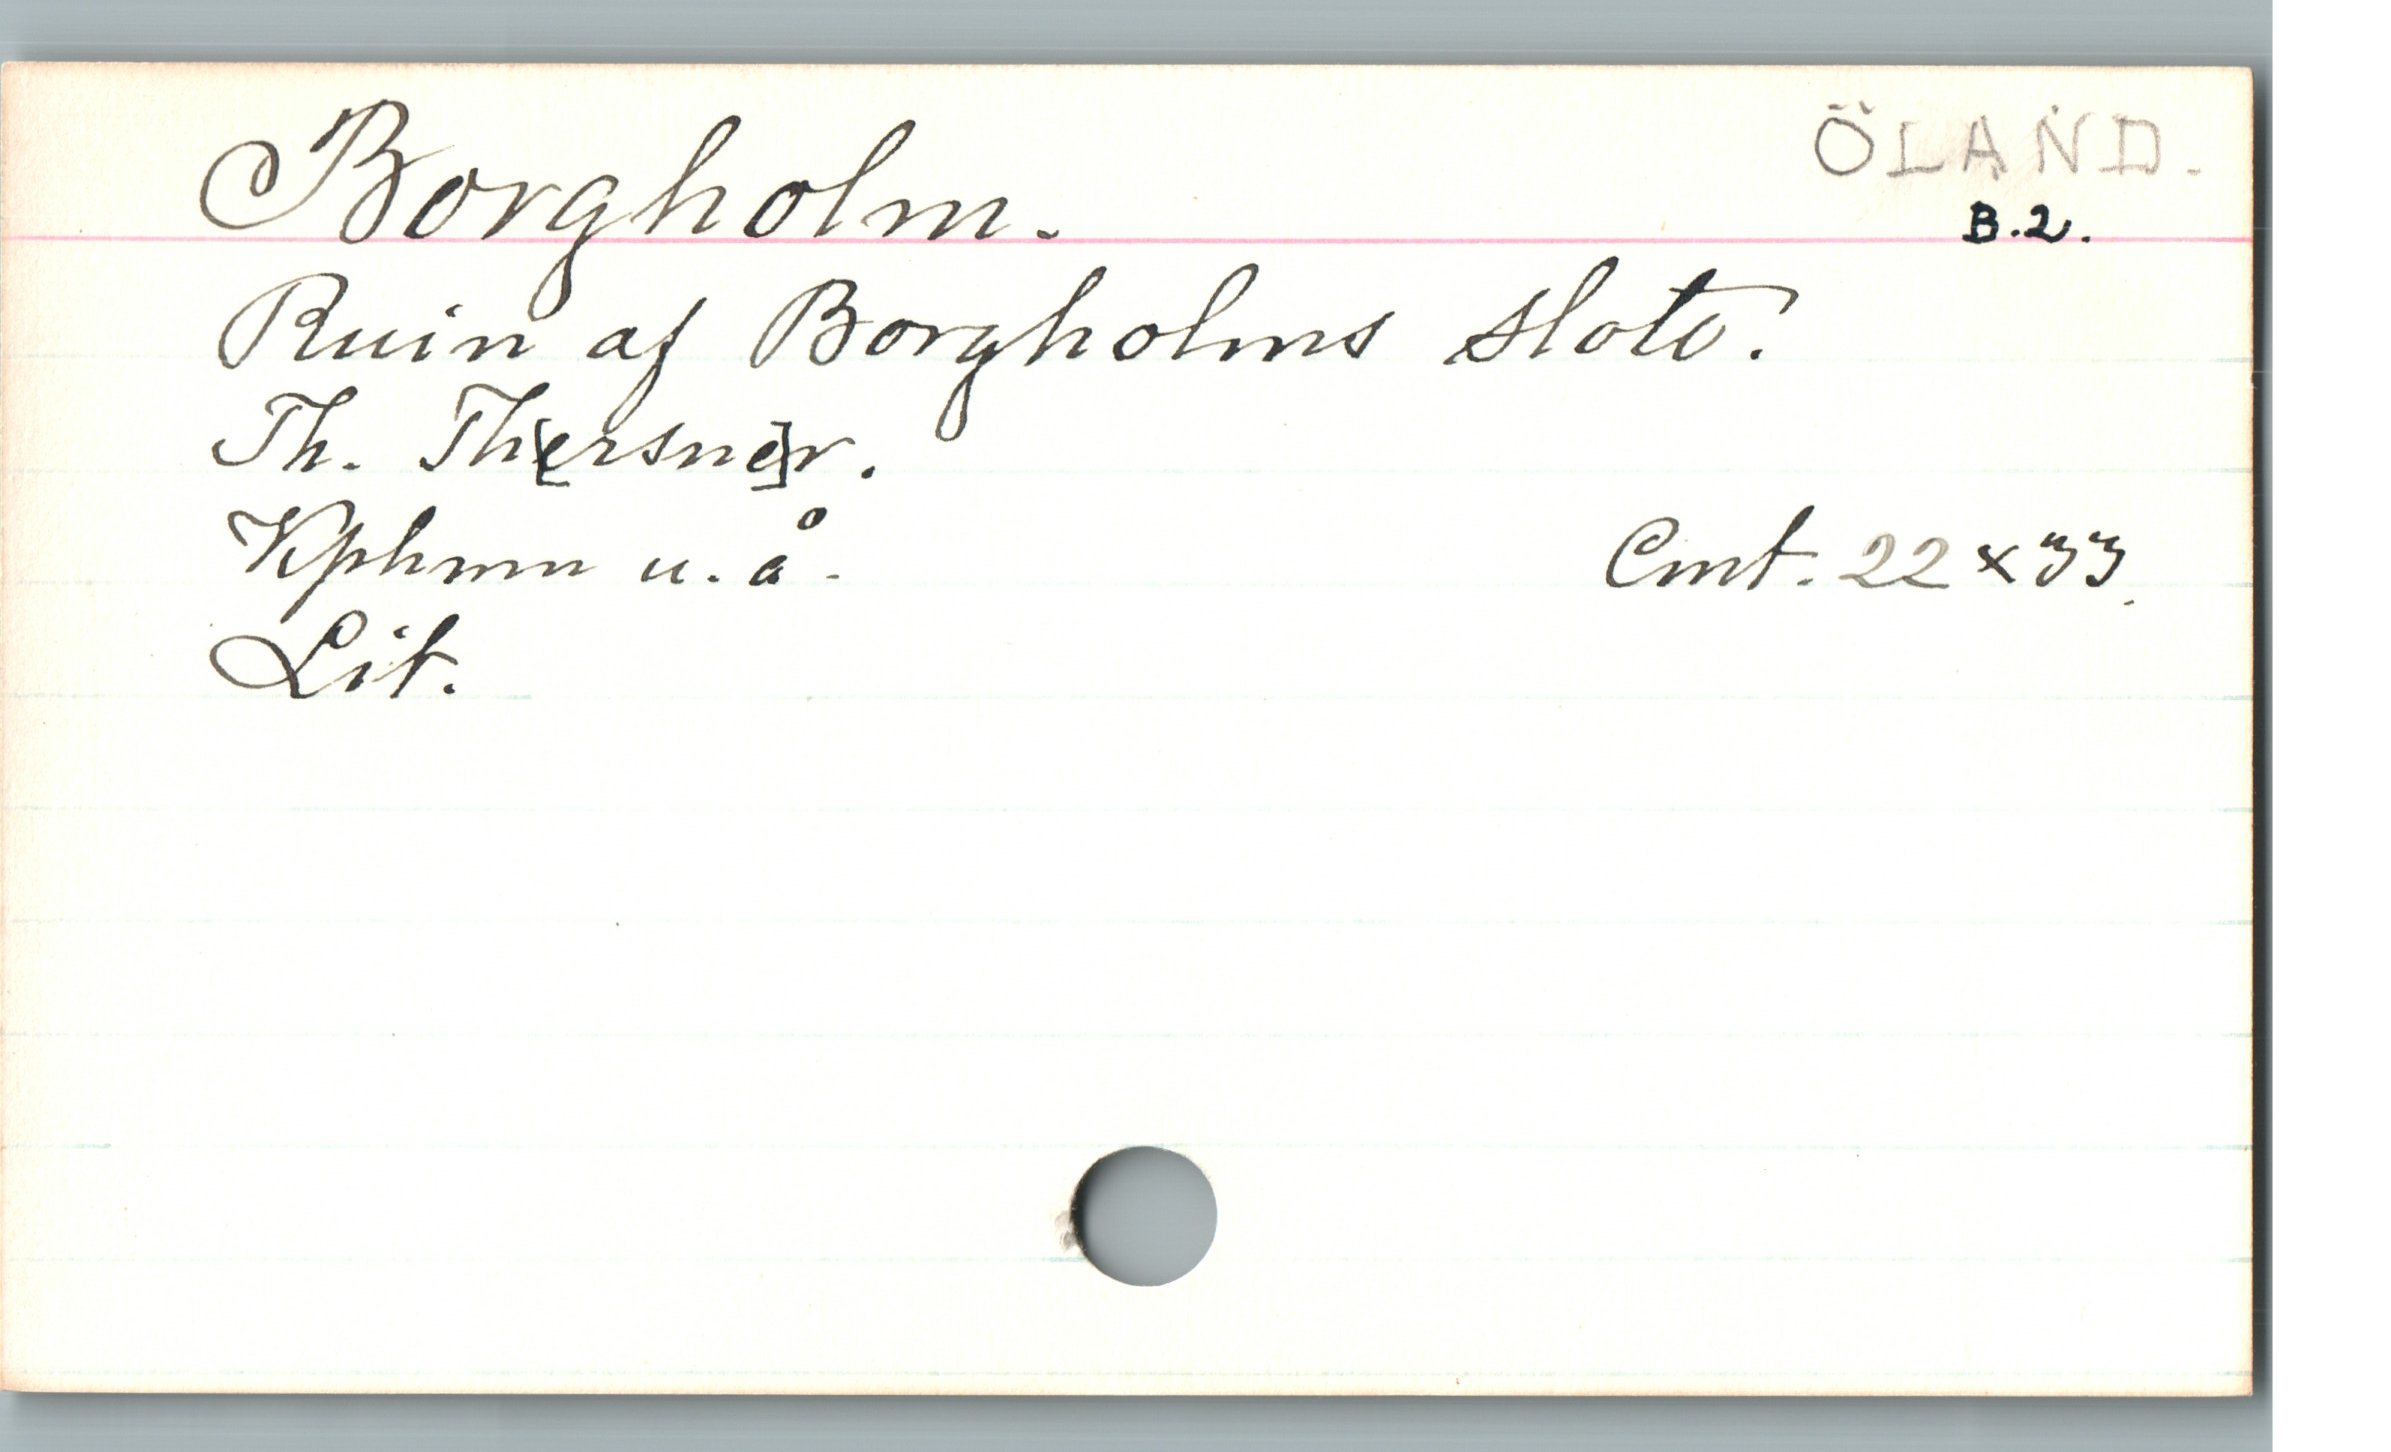 Borgholm.
ÖLAND.
B.2.
Ruin af Borgholms slott.
Th. Th[ersne]r.
Kphmn u. å.
Cmt. 22 x 33.
Lit.